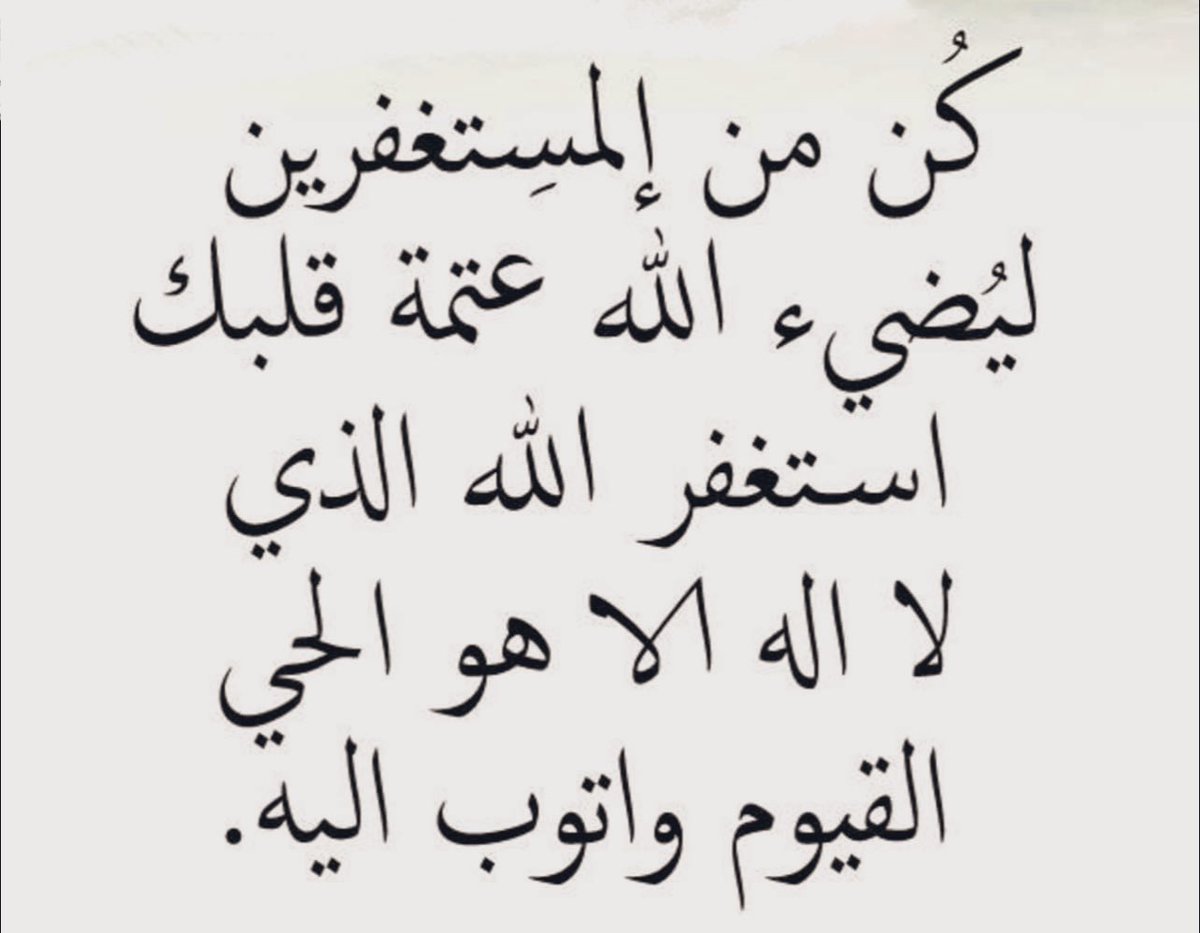 كُن من إلمسِتغفرين
ليُضيء الله عتمة قلبك
استغفر الله الذي
لا اله الا هو الحي
القيوم واتوب اليه.